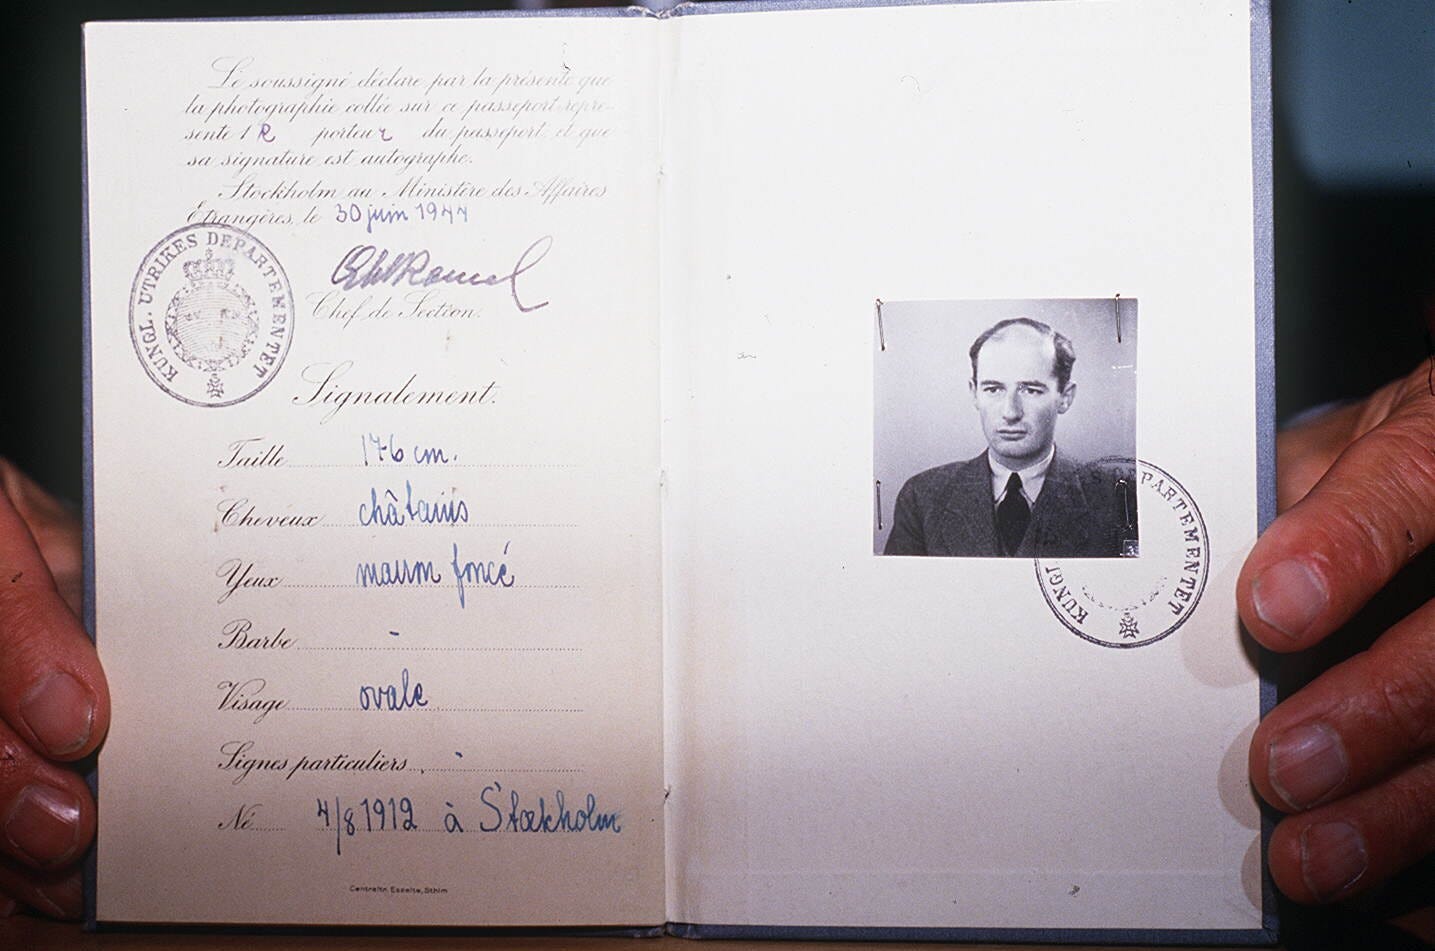 Le soussigné déclare par la présente que
la photographie collée sur ce passeport repré-
sente l e porteur du passeport et que
sa signature est autographe.
Stockholm au Ministère des Affaires
Étrangères, le 30 juin 1944
KUNGL. UTRIKES DEPARTEMENTET
Chef de Section.
Signalement.
Taille 176 cm.
Cheveux châtains
Yeux marron foncé
Barbe -
Visage ovale
Signes particuliers -
Né 4/8 1912 à Stockholm
Centraltr. Esselte, Sthlm
KUNGL DEPARTEMENTET